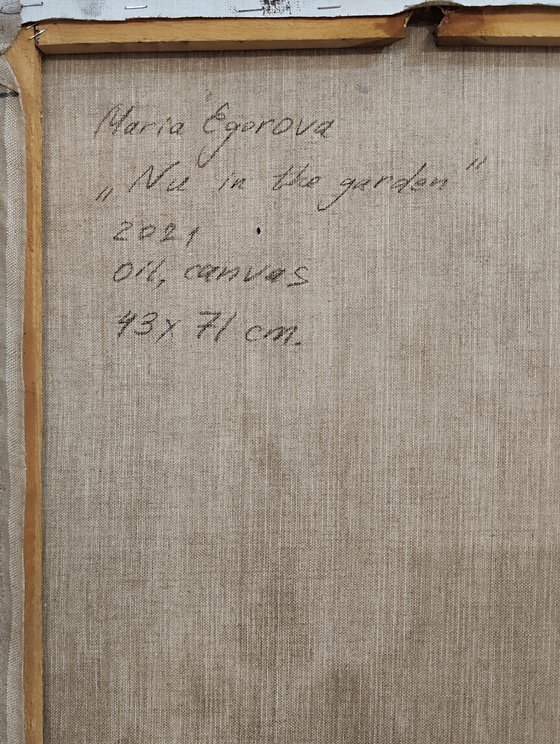 Maria Egorova
„Nu in the garden"
2021
oil, canvas
43x71 cm.